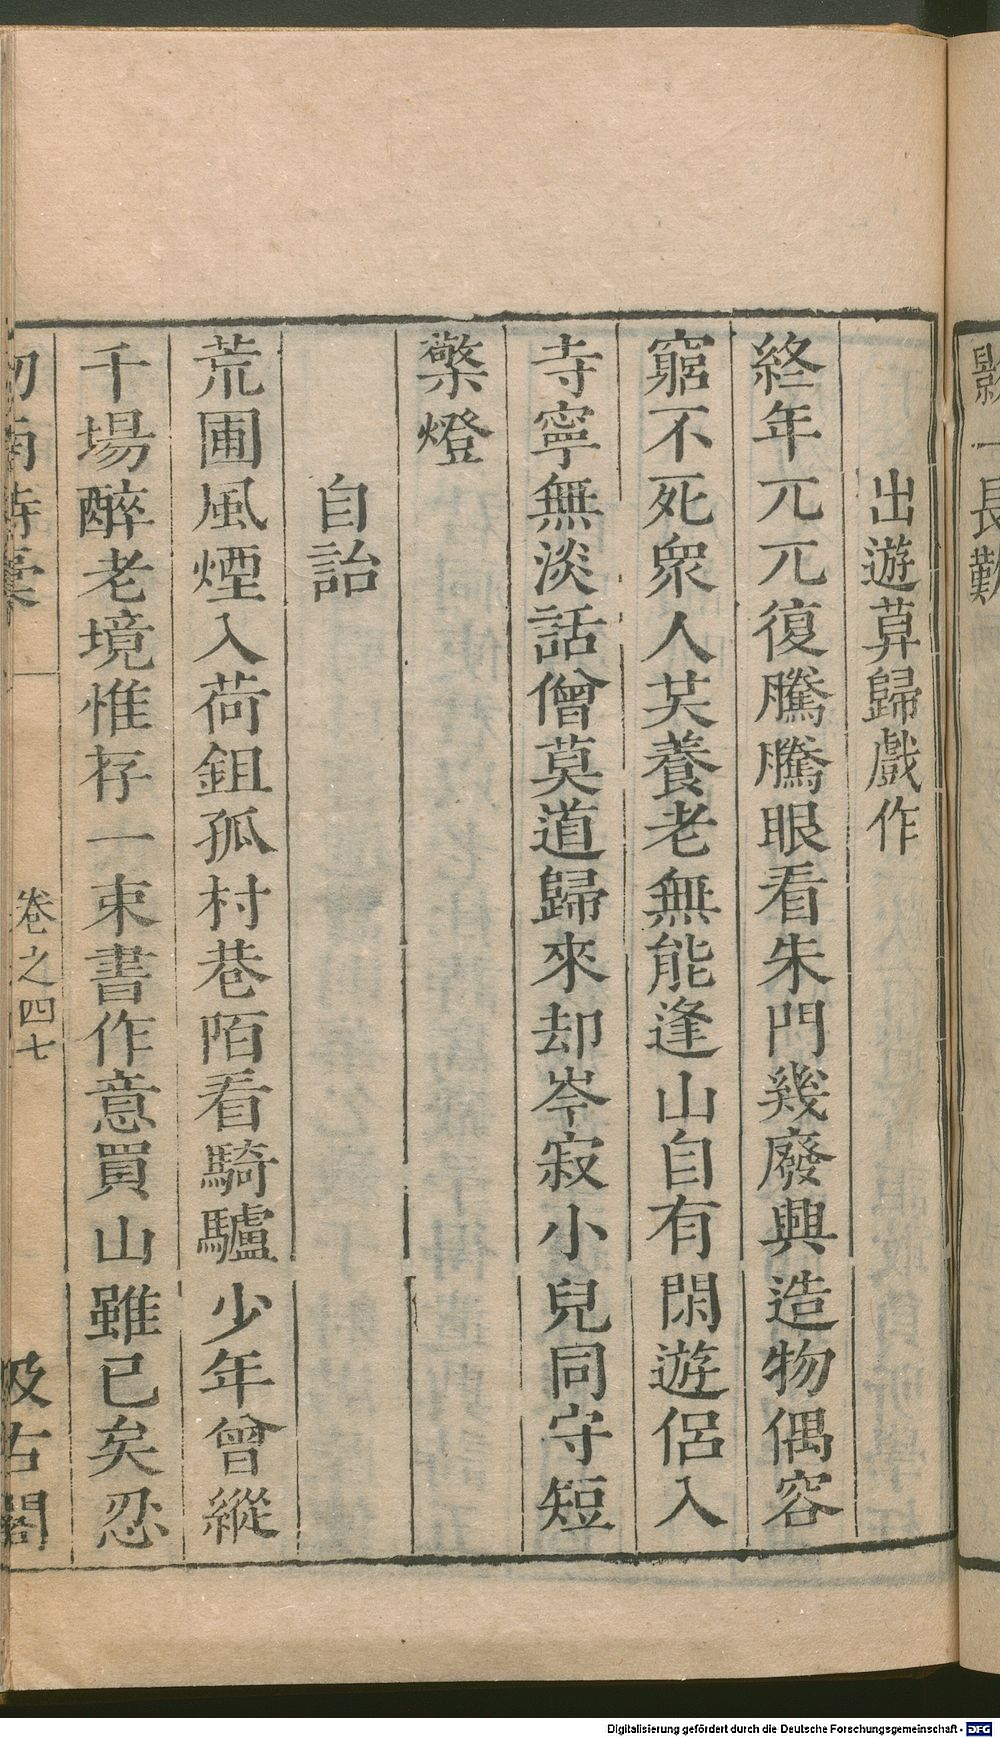 影一長歎
出遊莫歸戲作
終年兀兀復騰騰眼看朱門幾廢興造物偶容
窮不死衆人共養老無能逢山自有閑遊侶入
寺寧無淡話僧莫道歸來却岑寂小兒同守短
檠燈
自詒
荒圃風煙入荷鉏孤村巷陌看騎驢少年曾縱
千場醉老境惟存一束書作意買山雖已矣忍
劍南詩稾
卷之四七
汲古閣
Digitalisierung gefördert durch die Deutsche Forschungsgemeinschaft - DFG